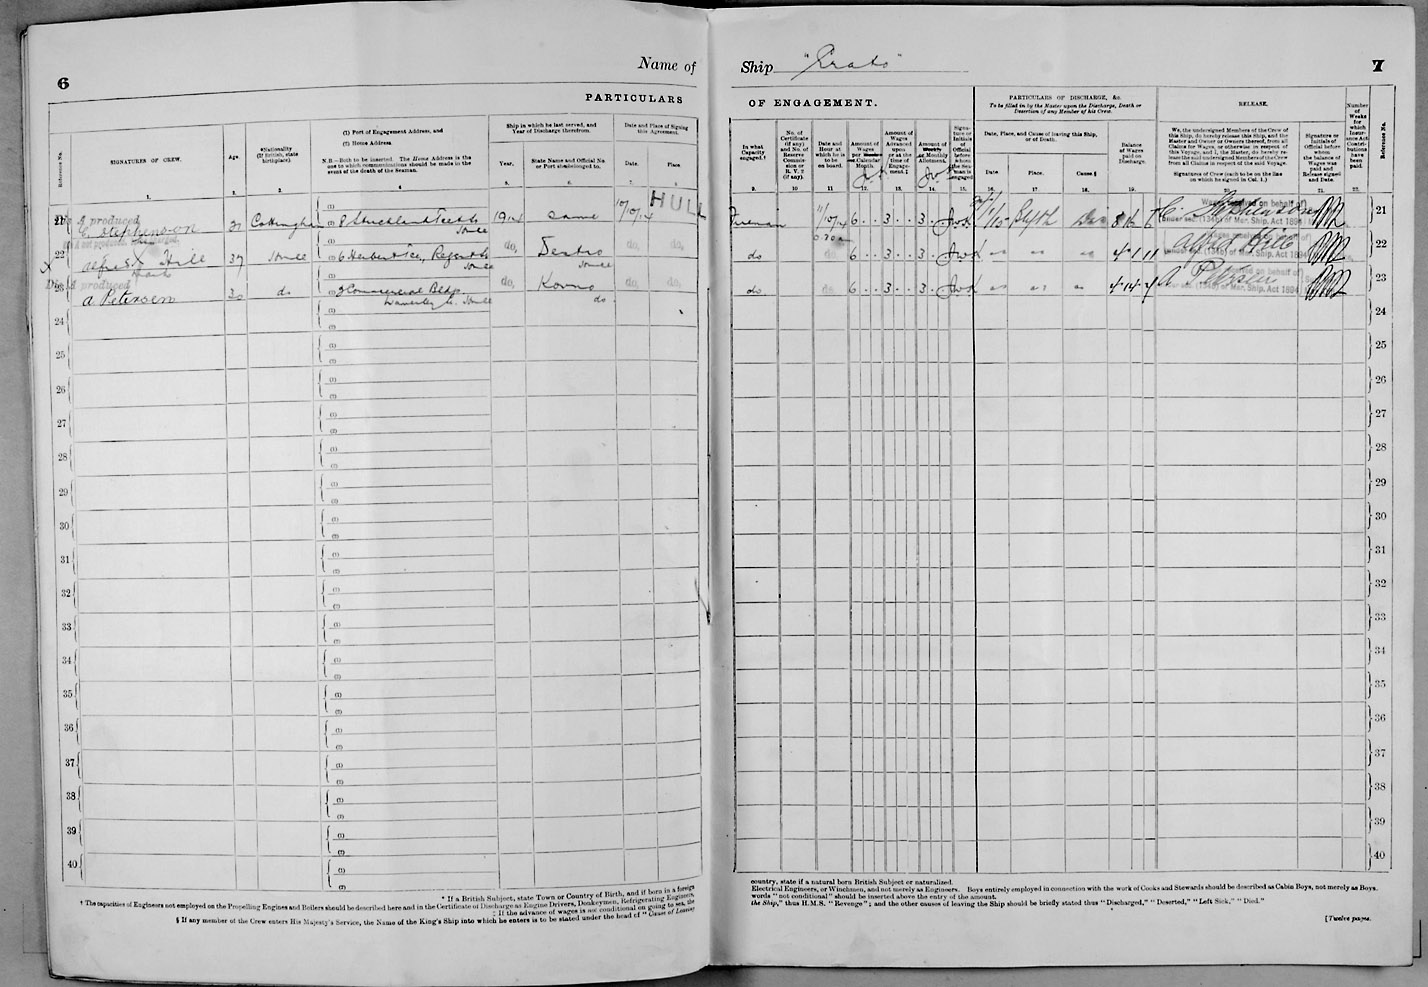 6
Name of
PARTICULARS
Reference No.
SIGNATURES OF CREW.
Age.
*Nationality
(If British, state
birthplace).
(1) Port of Engagement Address, and
(2) Home Address
N.B.—Both to be inserted. The Home Address is the
one to which communications should be made in the
event of the death of the Seaman.
Ship in which he last served, and
Year of Discharge therefrom.
Year.
State Name and Official No.
or Port she belonged to.
Date and Place of Signing
this Agreement.
Date.
Place.
1. 2. 3. 4 5. 6. 7. 8.
HULL
21 E. Stephenson 31 Cottingham 1914 Same
Hull
22 Alfred Hill 37 Hull 6 Herbert Tce, Regent St do, do, do,
Hull Hull
23 A Petersen 30 do 3 Commercial Bldgs do, Kovno do, do,
Hull do
24
25
26
27
28
29
30
31
32
33
34
35
36
37
38
39
40
* If a British Subject, state Town or Country of Birth, and if born in a foreign
† The capacities of Engineers not employed on the Propelling Engines and Boilers should be described here and in the Certificate of Discharge as Engine Drivers, Donkeymen, Refrigerating Engineers,
‡ If the advance of wages is not conditional on going to sea, the
§ If any member of the Crew enters His Majesty's Service, the Name of the King's Ship into which he enters is to be stated under the head of "Cause of Leaving
Ship "Erato"
7
OF ENGAGEMENT.
PARTICULARS OF DISCHARGE, &c.
To be filled in by the Master upon the Discharge, Death or
Desertion of any Member of his Crew.
RELEASE.
In what
Capacity
engaged.†
No. of
Certificate
(if any)
and No. of
Reserve
Commis-
sion or
R. V. 2
(if any).
Date and
Hour at
which he is
to be
on board.
Amount of
Wages
per
Calendar
Month.
Amount of
Wages
Advanced
upon
or at the
time of
Engage-
ment.‡
Amount of
Weekly
or Monthly
Allotment.
Signa-
ture or
Initials
of
Official
before
whom
the Sea-
man is
engaged
Date, Place, and Cause of leaving this Ship,
or of Death.
Date.
Place.
Cause.§
Balance
of Wages
paid on
Discharge.
We, the undersigned Members of the Crew of
this Ship, do hereby release this Ship, and the
Master and Owner or Owners thereof, from all
Claims for Wages, or otherwise in respect of
this Voyage, and I, the Master, do hereby re-
lease the said undersigned Members of the Crew
from all Claims in respect of the said Voyage.
Signatures of Crew (each to be on the line
on which he signed in Col. 1.)
Signature or
Initials of
Official before
whom
the balance of
Wages was
paid and
Release signed
and Date.
Number
of
Weeks
for
which
Insur-
ance Act
Contri-
butions
have
been
paid.
Reference No.
9. 10 11 12. 13. 14. 15. 16. 17. 18. 19. 20. 21. 22.
Fireman 6 3 3 Blyth Dis 8 16 6 21
do do 6 3 3 4 1 11 Alfred Hill 22
do do 6 3 3 4 14 23
24
25
26
27
28
29
30
31
32
33
34
35
36
37
38
39
40
country, state if a natural born British Subject or naturalized.
Electrical Engineers, or Winchmen, and not merely as Engineers. Boys entirely employed in connection with the work of Cooks and Stewards should be described as Cabin Boys, not merely as Boys.
words "not conditional" should be inserted above the entry of the amount.
the Ship," thus H.M.S. "Revenge"; and the other causes of leaving the Ship should be briefly stated thus "Discharged," "Deserted," "Left Sick," "Died."
[Twelve pages.